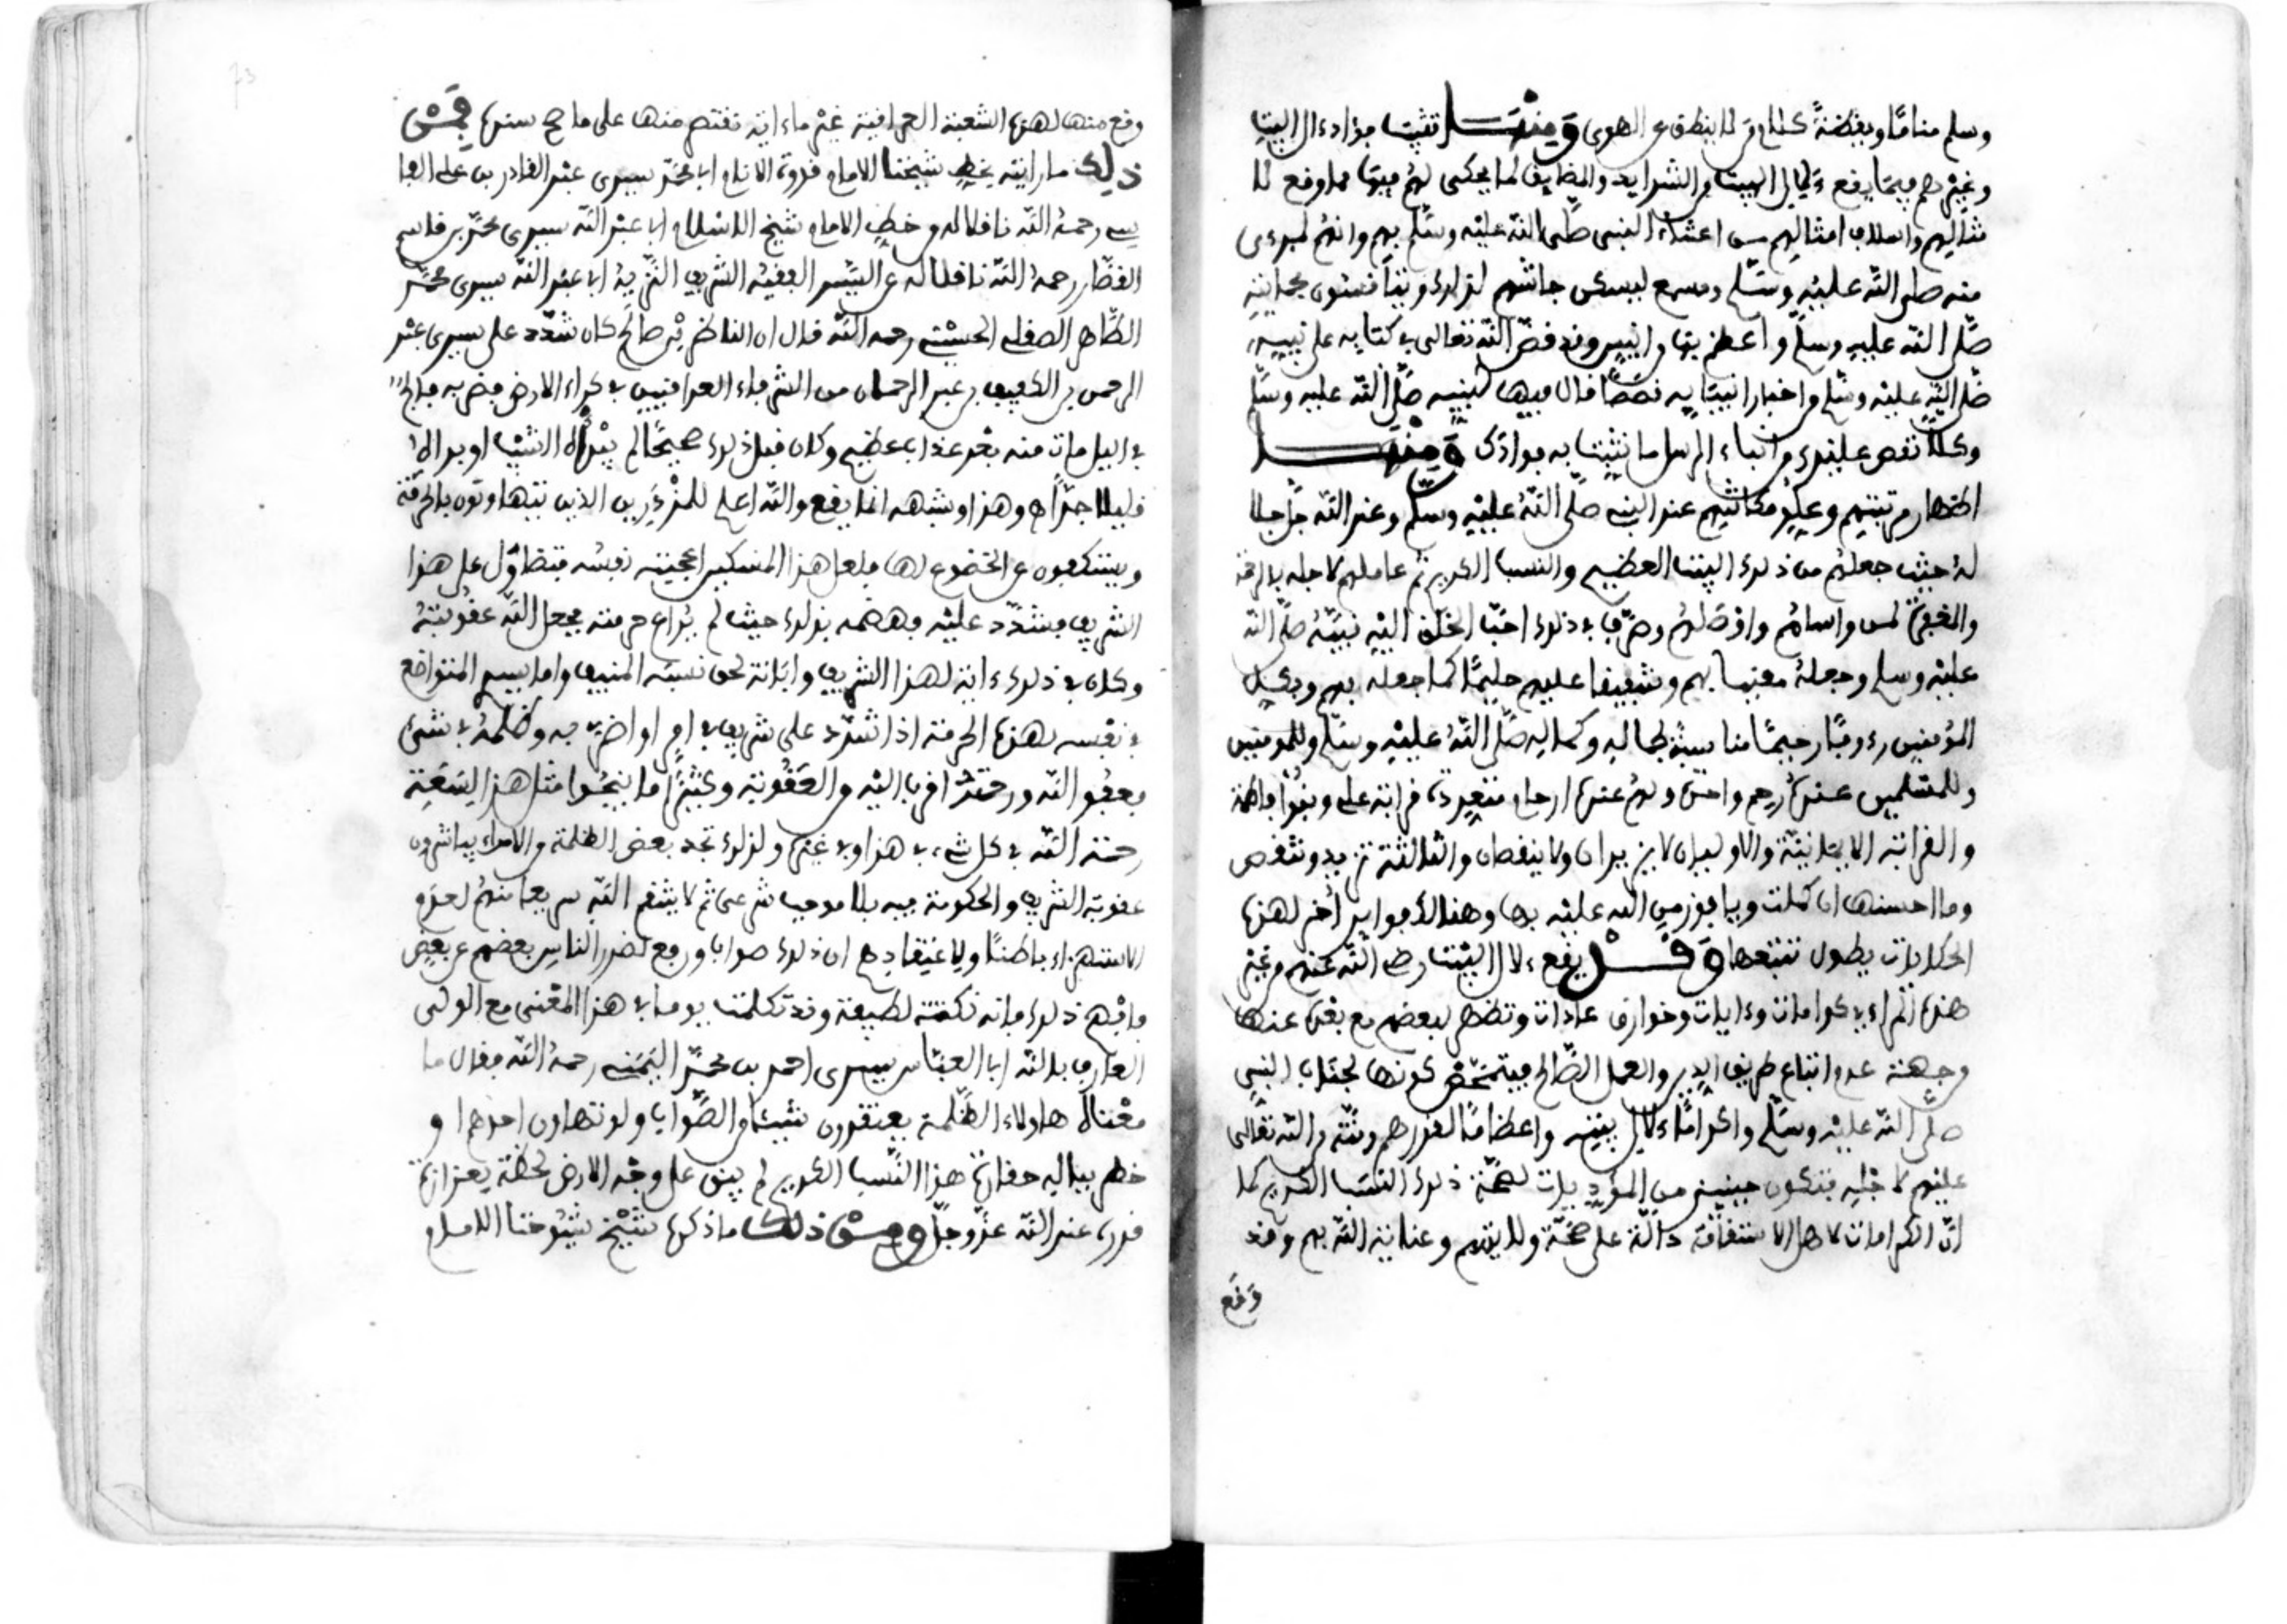 وسلم مناما ويقظة كلام من لا ينطق عن الهوى ومنها تثبيت فؤاد ءال البيت
وغيرهم فيما يقع ءلال البيت من الشدايد والمضايق لما يحكى لهم فيها مما وقع لا
مثالهم واسلاف امثالهم من اعتناء النبي صلى الله عليه وسلم بهم وانهم لبمرءى
منه صلى الله عليه وسلم ومسمع ليسكن جاشهم لذلك ويتأنسون بمحابته
صلى الله عليه وسلم واعظم بها من انيس وقد قص الله تعالى في كتابه على نبييه
صلى الله عليه وسلم من اخبار انبيايه قصصا قال فيها لنبيه صلى الله عليه وسلم
وكلا نقص عليك من انباء الرسل ما نثبت به فؤادك ومنها
اظهار مرتبتهم وعلو مكانتهم عند النبي صلى الله عليه وسلم وعند الله جل جلا
له حيث جعلهم من ذلك البيت العظيم والنسب الكريم ثم عاملهم لاجله بالرحمة
والمغفرة لمن واساهم واوصلهم وصرف في ذلك احب الخلق اليه نبيه صلى الله
عليه وسلم وجعله معتنيا بهم وشفيقا عليهم حليما كما جعله بهم وبكل
المؤمنين رءوفا رحيما مناسبة لجماله وكماله صلى الله عليه وسلم وللمومنين
وللمسلمين عنده رحم واحدة ولهم عنده ارحام متعددة قرابة علي وبنوا فاطمة
والقرابة الايمانية والاوليان لا يزيدان ولا ينقصان والثالثة تزيد وتنقص
وما احسنها ان كملت ويا فوز من الله عليه بها وهنالك فوايد أخر لهذه
الحكايات يطول تتبعها وقد يقع ءلال البيت رضي الله عنهم من غير
هذه المراءي كرامات وءايات وخوارق عادات وتظهر لبعضهم مع بعده عنها
من جهة عدم اتباع طريق الدين والعمل الصالح فيتمحض كونها لجناب النبي
صلى الله عليه وسلم واكراما ءلال بيته واعظاما لقدرهم ومنة من الله تعالى
عليهم لاجله فتكون حينيذ من المؤيدات لصحة ذلك النسب الكريم كما
ان الكرامات لاهل الاستقامة دالة على صحة ولايتهم وعناية الله بهم وقد
وقع
وقع منها لهذه الشعبة العراقية غير ما ءاية نقتصر منها على ما صح سنده فمن
ذلك ما رايته بخط شيخنا الامام قدوة الانام ابي محمد سيدي عبد القادر بن علي الفا
سي رحمه الله ناقلا له من خط الامام شيخ الاسلام ابي عبد الله سيدي محمد بن قاسم
القصار رحمه الله ناقلا له عن السيد الفقيه الشريف النزيه ابي عبد الله سيدي محمد
الطاهر الصقلي الحسيني رحمه الله قال ان الناظر بن صالح كان شدد على سيدي عبد
الرحمن بن الكفيف بن عبد الرحمان من الشرفاء العراقيين في كراء الارض فضربه فالج
في اليل مات منه بعد عذاب عظيم وكان قبل ذلك صحيحا لم ينزله الشيب او بدا له
قليلا جدا اه وهذا وشبهه انما يقع والله اعلم للمزدرين الذين يتهاونون بالحرمة
ويستنكفون عن الخضوع لها فلعل هذا المتكبر اعجبته نفسه فتطاول على هذا
الشريف فشدد عليه وهضمه بذلك حيث لم يراع حرمته فجعل الله عقوبته
وكان في ذلك ءاية لهذا الشريف وابانة لحق نسبه المنيف واما سهم المتواضع
في نفسه لهذه الحرمة اذا شدد على شريف في امر او اضر به وظلمه في شيء
فعفو الله ورحمته اقرب اليه من العقوبة وكثيرا ما ينجوا مثل هذا لسعة
رحمة الله في كل شيء في هذا وفي غيره ولذلك تجد بعض الظلمة والامراء يباشرون
عقوبة الشريف والحكومة فيه بلا موجب شرعي ثم لا ينتقم الله سريعا منهم لعدم
الاستهزاء باطنا ولاعتقادهم ان ذلك صوابا ورفع لضرر الناس بعضهم عن بعض
فافهم ذلك فانه نكتة لطيفة وقد تكلمت يوما في هذا المعنى مع الولي
العارف بالله ابي العباس سيدي احمد بن محمد اليمني رحمه الله فقال ما
معناه هاولاء الظلمة يعتقدون شيئا من الصواب ولو تهاون احدهم او
خطر بباله حقارة هذا النسب الكريم لم يبق على وجه الارض لحظة لعزازة
قدره عند الله عز وجل ومن ذلك ما ذكره شيخ شيوخنا الامام